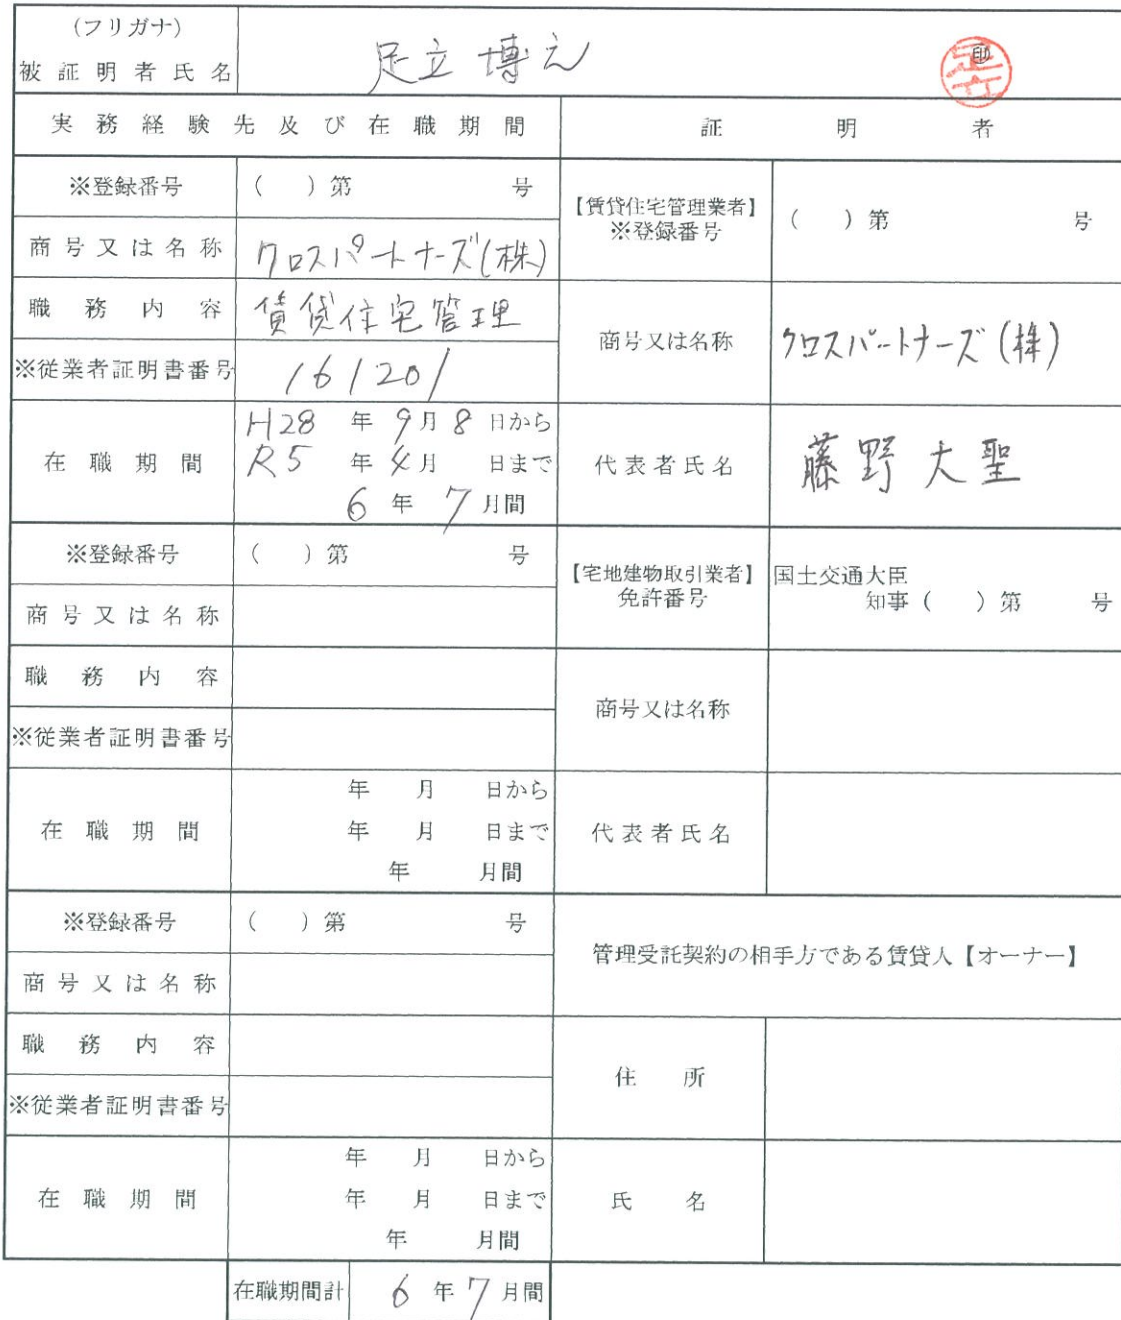 (フリガナ)
被証明者氏名 足立博之 印 足立
実務経験先及び在職期間 証明者
※登録番号 ( ) 第 号
商号又は名称 クロスパートナーズ(株)
職務内容 賃貸住宅管理
※従業者証明書番号 161201
在職期間 H28 年 9月 8 日から
R5 年 4月 日まで
6 年 7 月間
【賃貸住宅管理業者】
※登録番号 ( ) 第 号
商号又は名称 クロスパートナーズ(株)
代表者氏名 藤野大聖
※登録番号 ( ) 第 号
商号又は名称
職務内容
※従業者証明書番号
在職期間 年 月 日から
年 月 日まで
年 月間
【宅地建物取引業者】 国土交通大臣
免許番号 知事 ( ) 第 号
商号又は名称
代表者氏名
※登録番号 ( ) 第 号
商号又は名称
職務内容
※従業者証明書番号
在職期間 年 月 日から
年 月 日まで
年 月間
管理受託契約の相手方である賃貸人【オーナー】
住所
氏名
在職期間計 6 年 7 月間